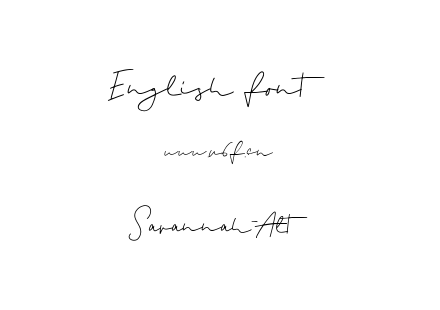 English font
www.n6f.cn
Savannah-Alt